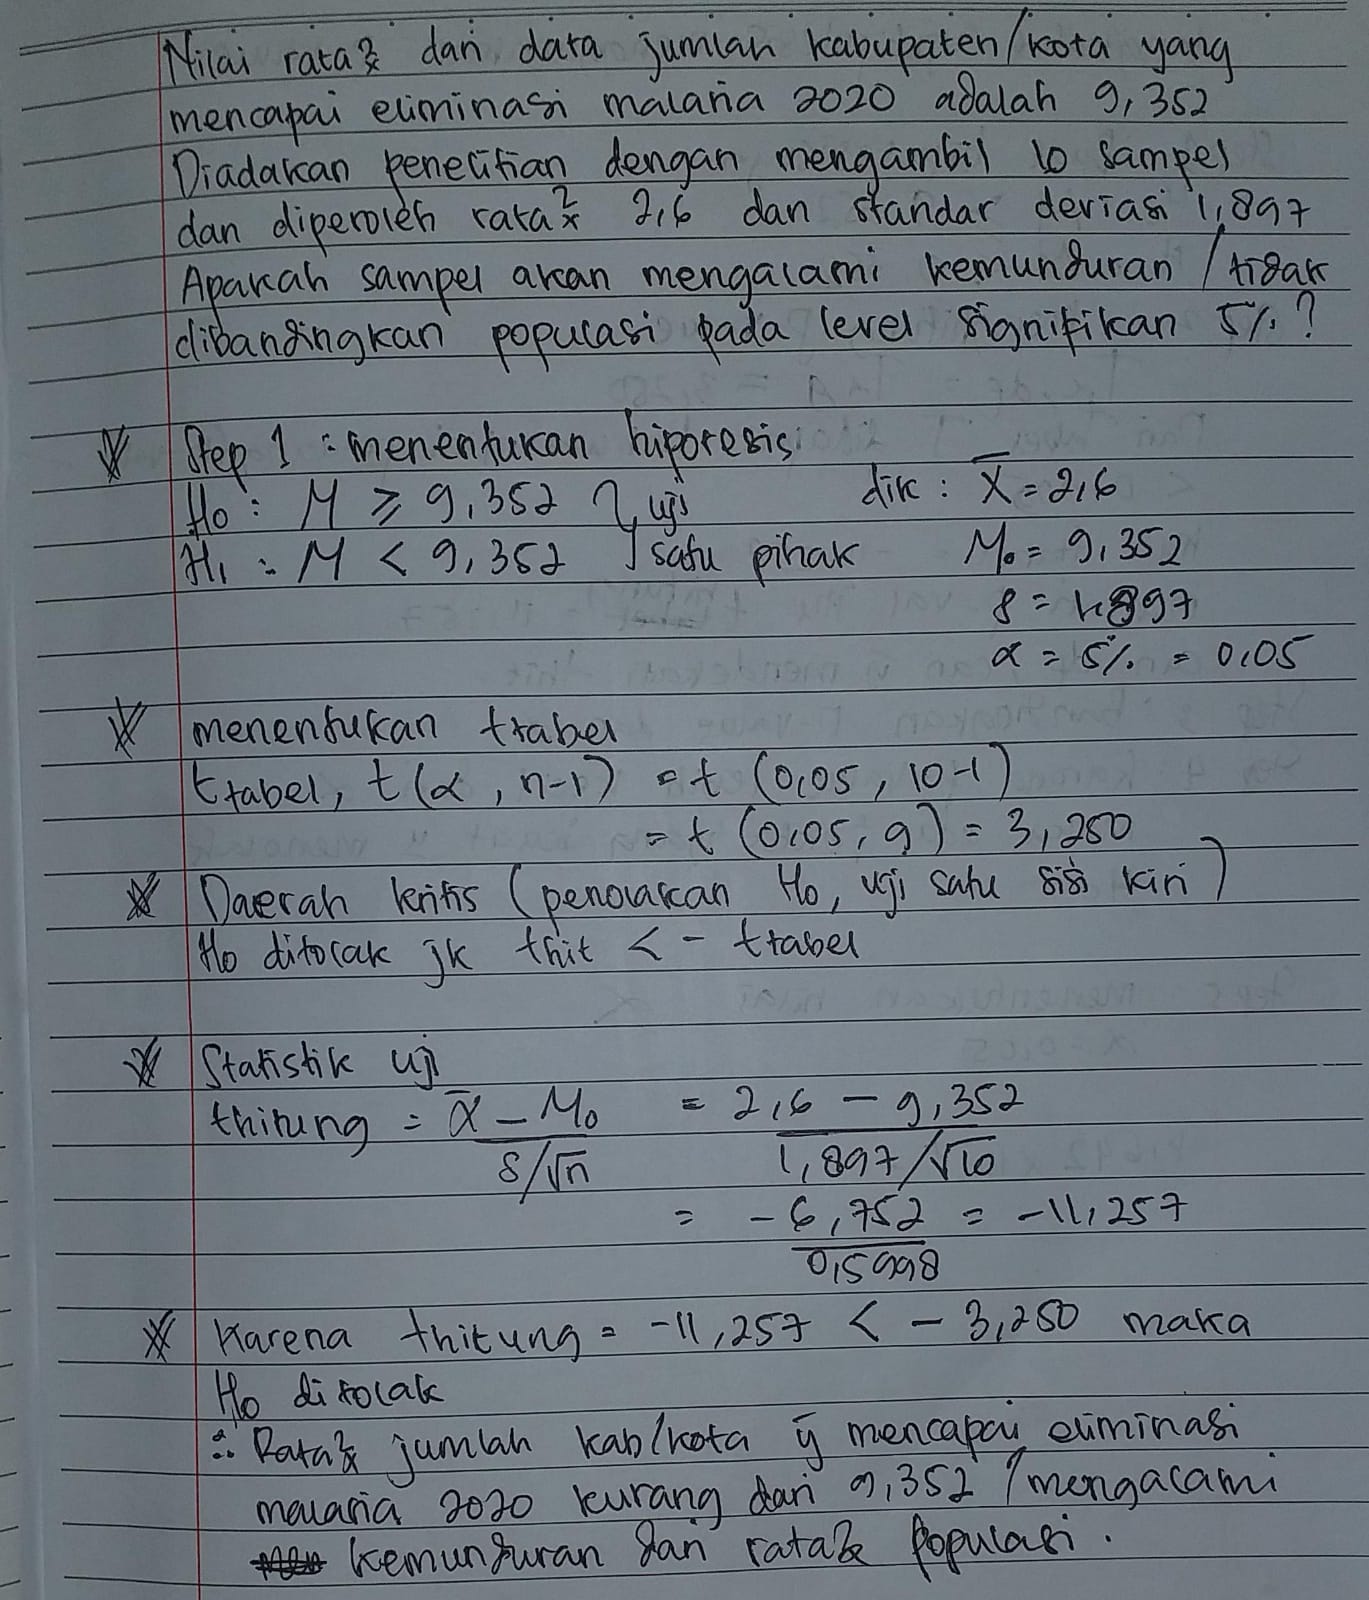 Nilai rata² dari data jumlah kabupaten/kota yang
mencapai eliminasi malaria 2020 adalah 9,352
Diadakan penelitian dengan mengambil 10 sampel
dan diperoleh rata² 2,6 dan standar deviasi 1,897
Apakah sampel akan mengalami kemunduran / tidak
dibandingkan populasi pada level signifikan 5% ?
Step 1 : menentukan hipotesis
Ho : M ≥ 9,352 } uji dik : x̄ = 2,6
H1 : M < 9,352 satu pihak Mo = 9,352
s = 1,897
α = 5% = 0,05
menentukan ttabel
ttabel, t (α , n-1) = t (0,05, 10-1)
= t (0,05, 9) = 3,250
Daerah kritis (penolakan Ho, uji satu sisi kiri)
Ho ditolak jk thit < - ttabel
Statistik uji
thitung = x̄ - Mo = 2,6 - 9,352
s/√n 1,897/√10
= -6,752 = -11,257
0,5998
Karena thitung = -11,257 < -3,250 maka
Ho ditolak
∴ Rata² jumlah kab/kota ÿ mencapai eliminasi
malaria 2020 kurang dari 9,352 / mengalami
kemunduran dari rata² populasi.